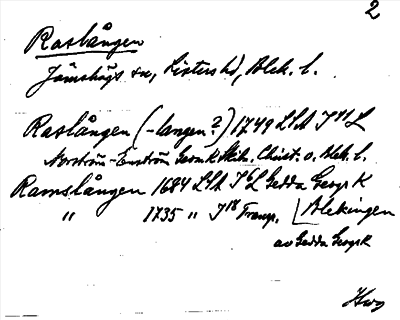 2
Raslången
Jämshögs sn, Listers hd, Blek. l.
Raslången (-langen?) 1749 LStA J11 L
Norström-Enström Geom K Skh. Christ. o. Blek. l.
Ramslången 1684 LStA J6 L Gedda Geogr K
" 1735 " J18 Transp. Blekingen
av Gedda Geogr K
Hwg